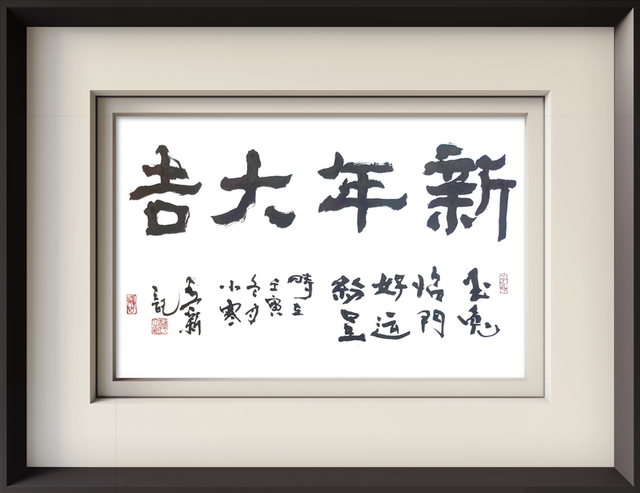 新年大吉
玉兔
临門
好运
紛呈
時在
壬寅
冬月
小寒
新
記